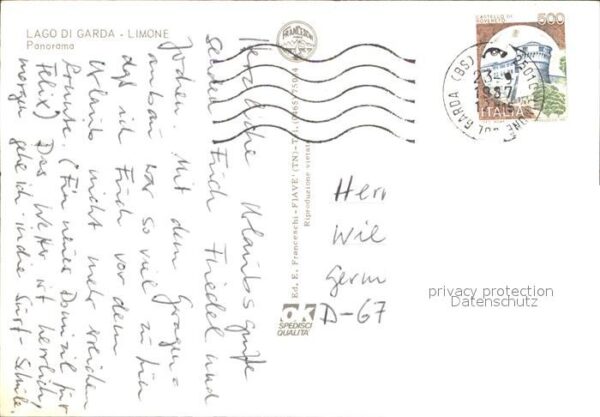 LAGO DI GARDA - LIMONE
Panorama
Herzliche Urlaubsgrüße
senden Erich Friedel und
Jochen. Mit dem Garagen-
umbau war so viel zu tun
daß ich Euch vor dem
Urlaub nicht mehr
konnte. (Ein neues Domizil für
Felix) Das Wetter ist herrlich,
morgen gehe ich in die Surf-Schule.
Ed. E. Franceschi - FIAVE' (TN) - Tel. (0465) 75
Riproduzione vietata
FRANCESCHI
OK
SPEDISCI
QUALITÀ
CASTELLO DI
ROVERETO
500
ITALIA
GARDA (BS)
1987
Herr
Wie
Germ
D-67
privacy protection
Datenschutz